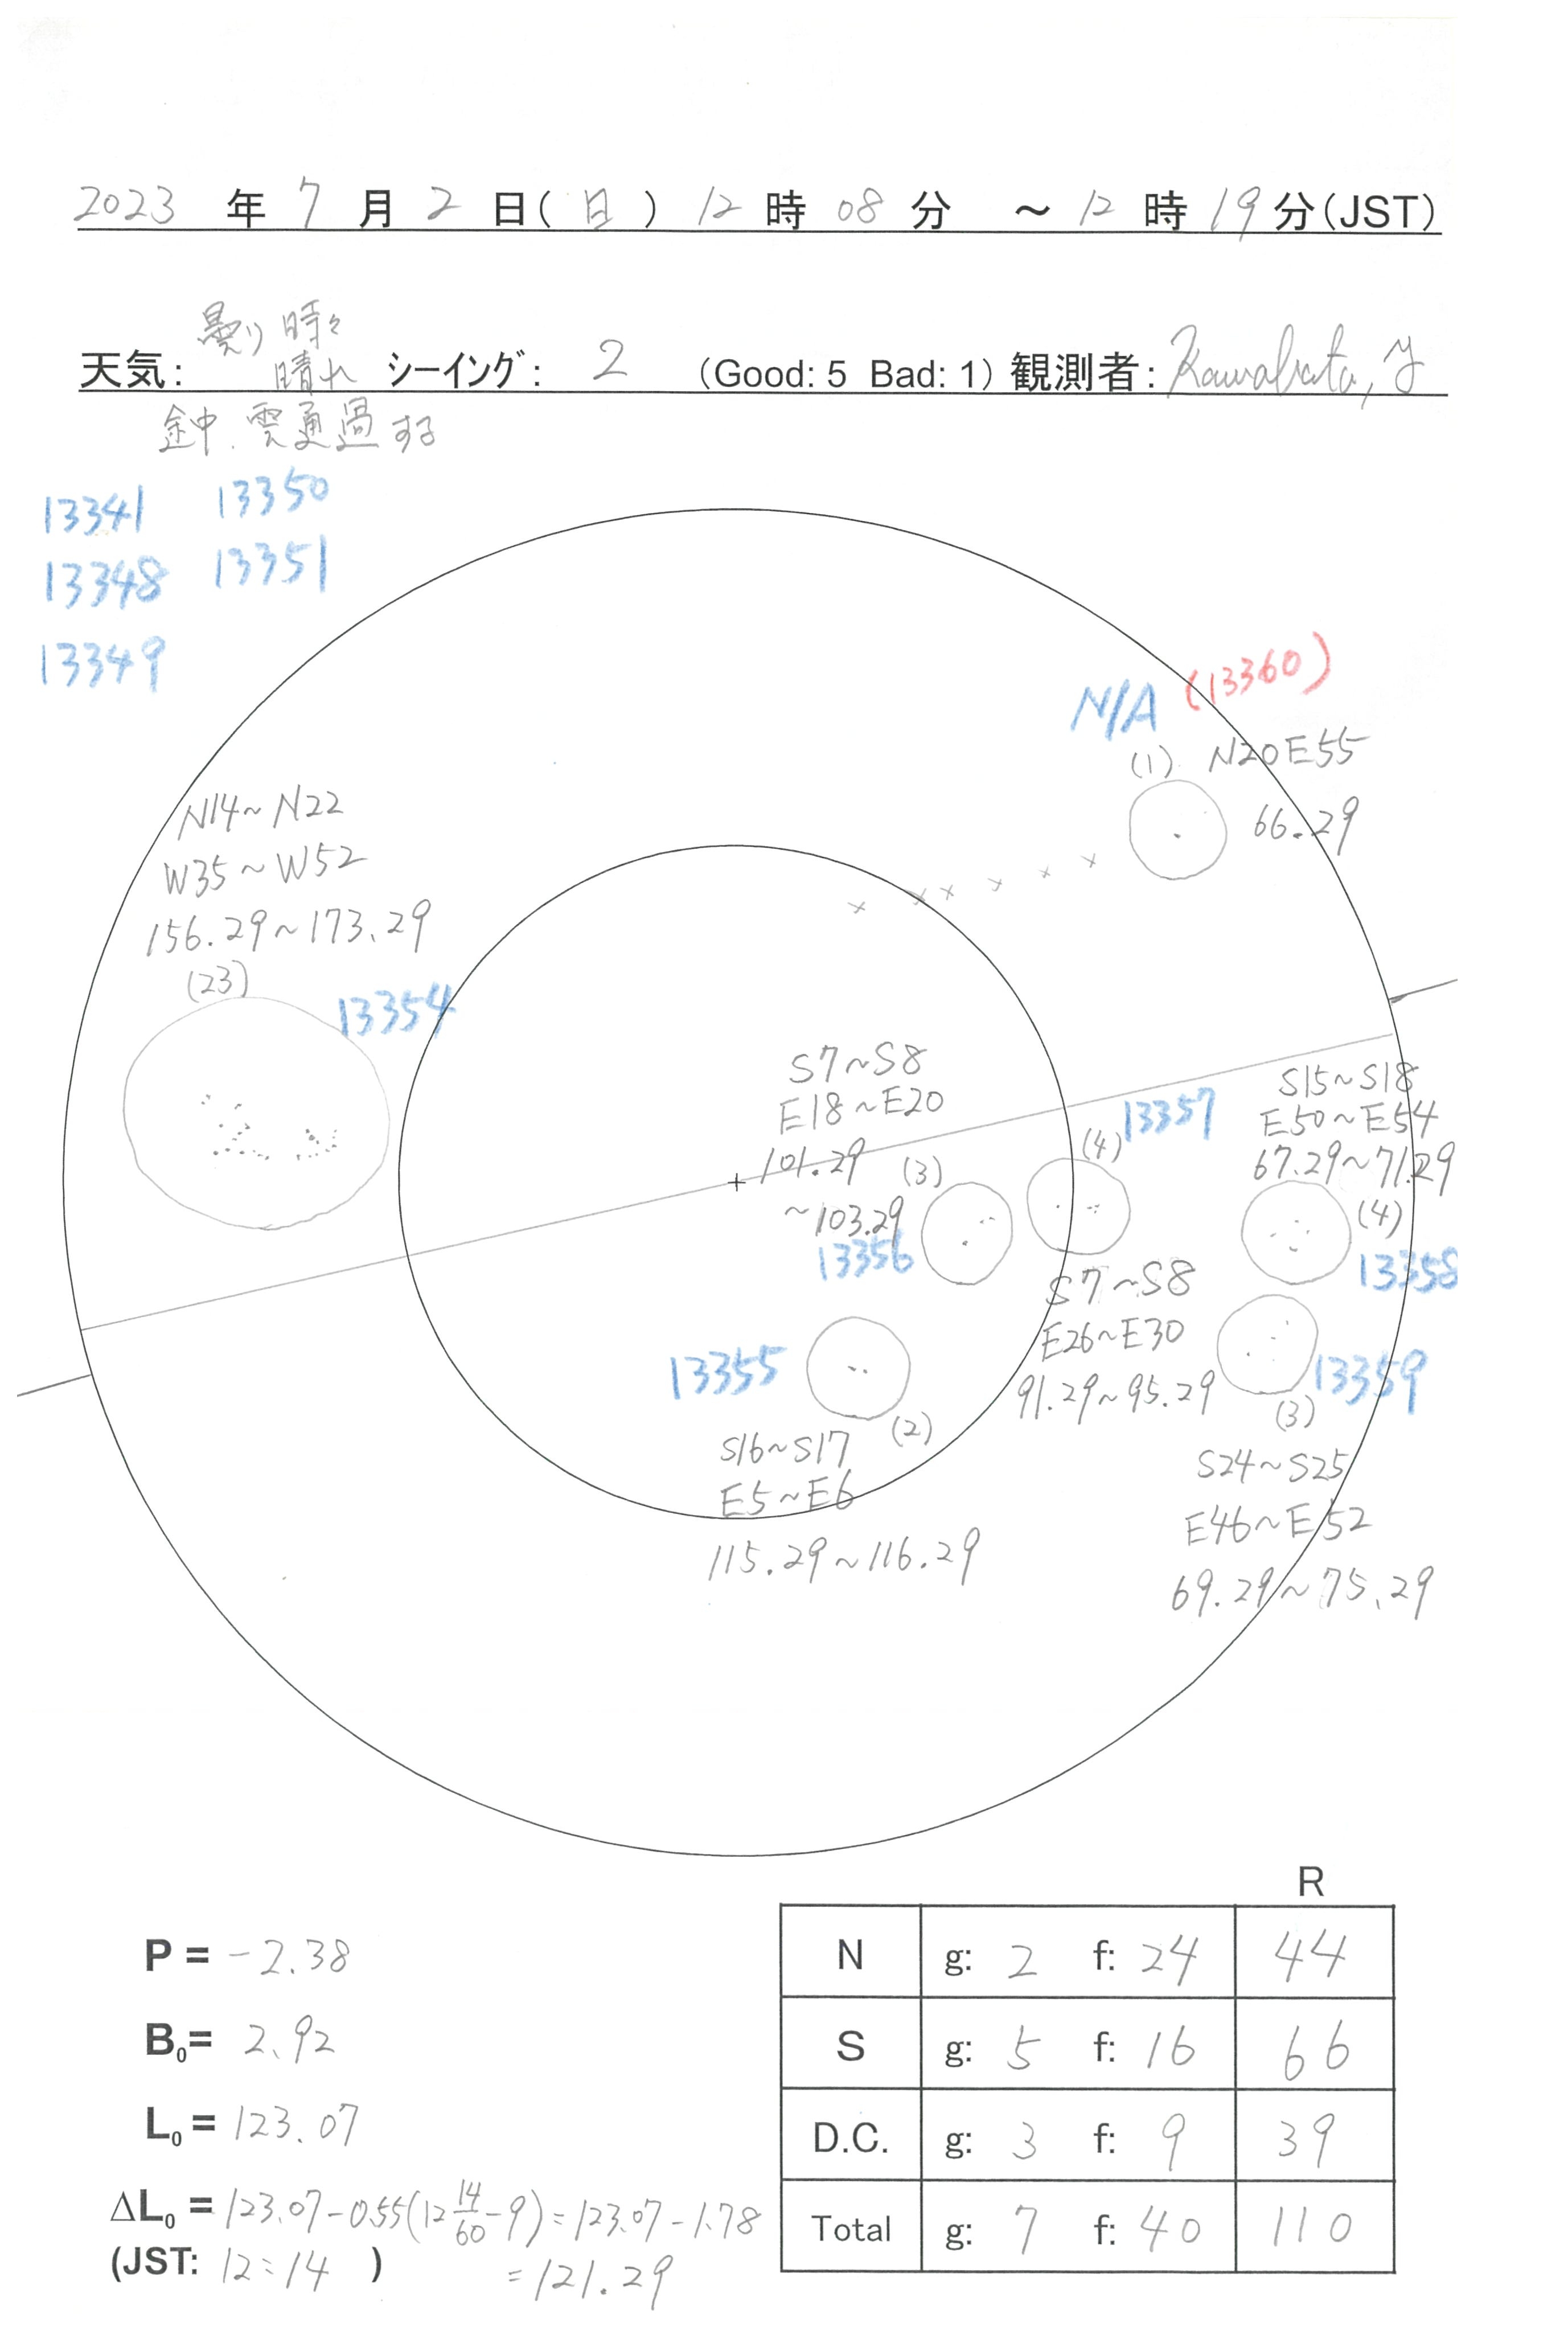 2023 年 7 月 2 日(日) 12 時 08 分 ～ 12 時 19 分(JST)
曇り 時々
天気: 晴れ シーイング: 2 (Good: 5 Bad: 1) 観測者: Kawabata, y
雲通過する
13341 13350
13348 13351
13349
N/A (13360)
(1) N20E55
66.29
N14~N22
W35~W52
156.29~173.29
(23)
13354
S7~S8
E18~E20
101.29 (3)
~103.29
13356
(4) 13357
S7~S8
E26~E30
91.29~95.29
S15~S18
E50~E54
67.29~71.29
(4)
13358
13359
(3)
S24~S25
E46~E52
69.29~75.29
13355
(2)
S16~S17
E5~E6
115.29~116.29
R
P = -2.38
B₀= 2.92
L₀ = 123.07
ΔL₀ = 123.07-0.55(12 14/60 -9) = 123.07-1.78
(JST: 12:14 ) = 121.29
N g: 2 f: 24 44
S g: 5 f: 16 66
D.C. g: 3 f: 9 39
Total g: 7 f: 40 110